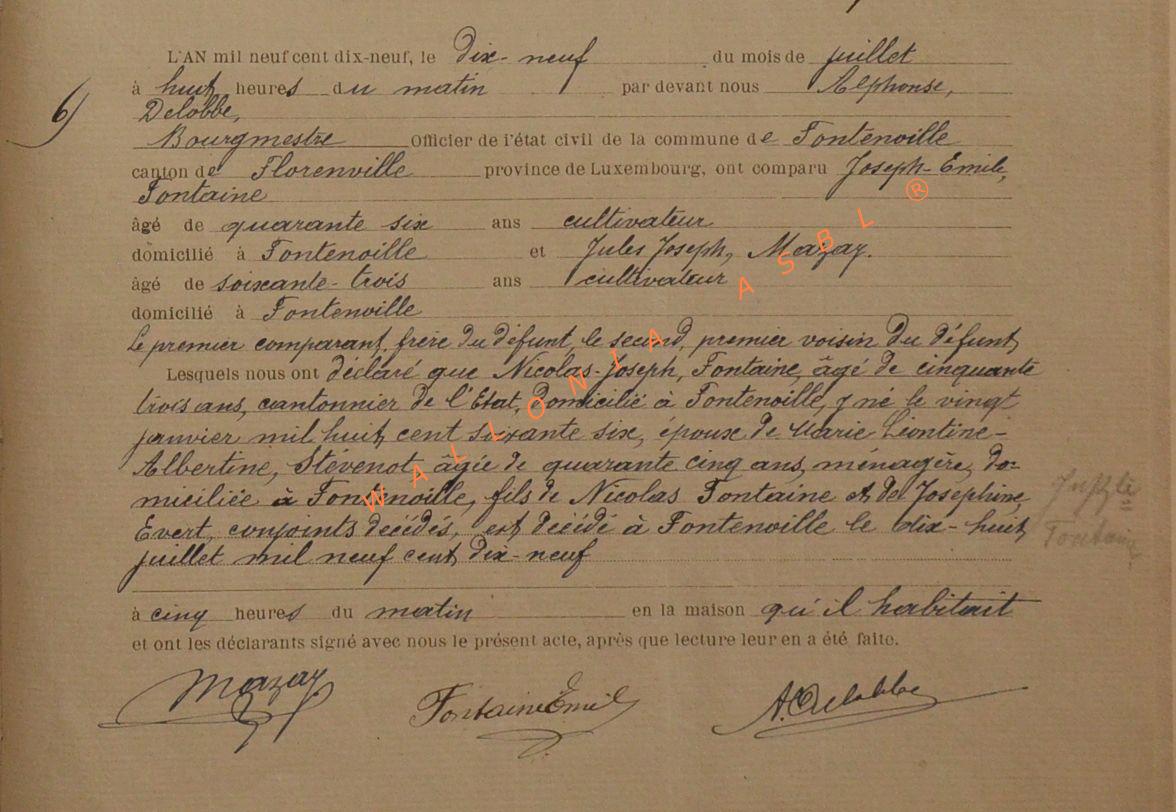 L'AN mil neuf cent dix-neuf, le dix-neuf du mois de juillet
à huit heures du matin par devant nous Alphonse,
Delobbe,
6)
Bourgmestre Officier de l'état civil de la commune de Fontenoille
canton de Florenville province de Luxembourg, ont comparu Joseph-Emile,
Fontaine
âgé de quarante six ans cultivateur
domicilié à Fontenoille et Jules Joseph, Mazay.
âgé de soixante-trois ans cultivateur
domicilié à Fontenoille
Le premier comparant, frère du défunt, le second, premier voisin du défunt,
Lesquels nous ont déclaré que Nicolas-Joseph, Fontaine, âgé de cinquante
trois ans, cantonnier de l'Etat, domicilié à Fontenoille, y né le vingt
janvier mil huit cent soixante six, époux de Marie Léontine-
Albertine, Stévenot, âgée de quarante cinq ans, ménagère, do=
miciliée à Fontenoille, fils de Nicolas Fontaine et de Joséphine
Evert, conjoints décédés, est décédé à Fontenoille le dix-huit
juillet mil neuf cent dix-neuf
à cinq heures du matin en la maison qu'il habitait
et ont les déclarants signé avec nous le présent acte, après que lecture leur en a été faite.
Mazay Fontaine Emile A. Delobbe
Fontaine
WALLONIA ASBL ®